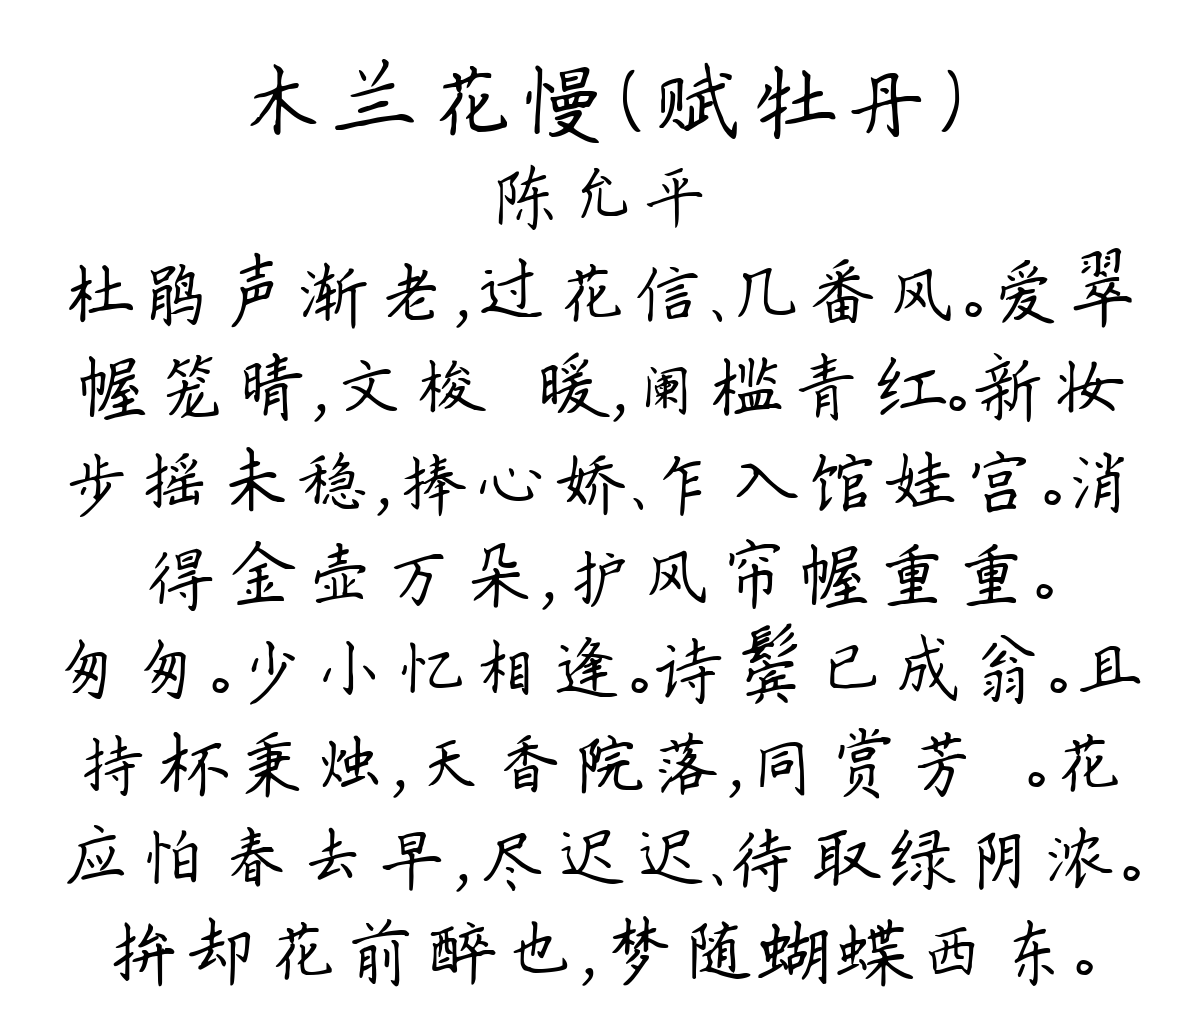 木兰花慢(赋牡丹)
陈允平
杜鹃声渐老,过花信、几番风。爱翠
幄笼晴,文梭 暖,阑槛青红。新妆
步摇未稳,捧心娇、乍入馆娃宫。消
得金壶万朵,护风帘幄重重。
匆匆。少小忆相逢。诗鬓已成翁。且
持杯秉烛,天香院落,同赏芳 。花
应怕春去早,尽迟迟、待取绿阴浓。
拚却花前醉也,梦随蝴蝶西东。